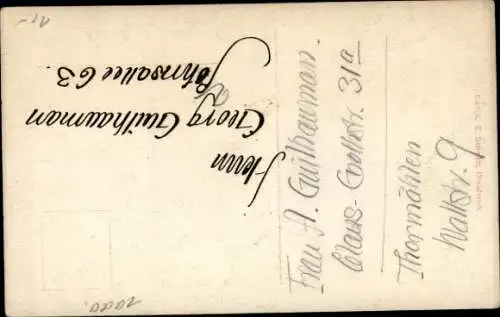 Herrn
Georg Guilhauman
Lohrsallee 63.
Frau A. Guilhauman.
Claus-Grothstr. 31a
Thormählen
Wallstr. 9